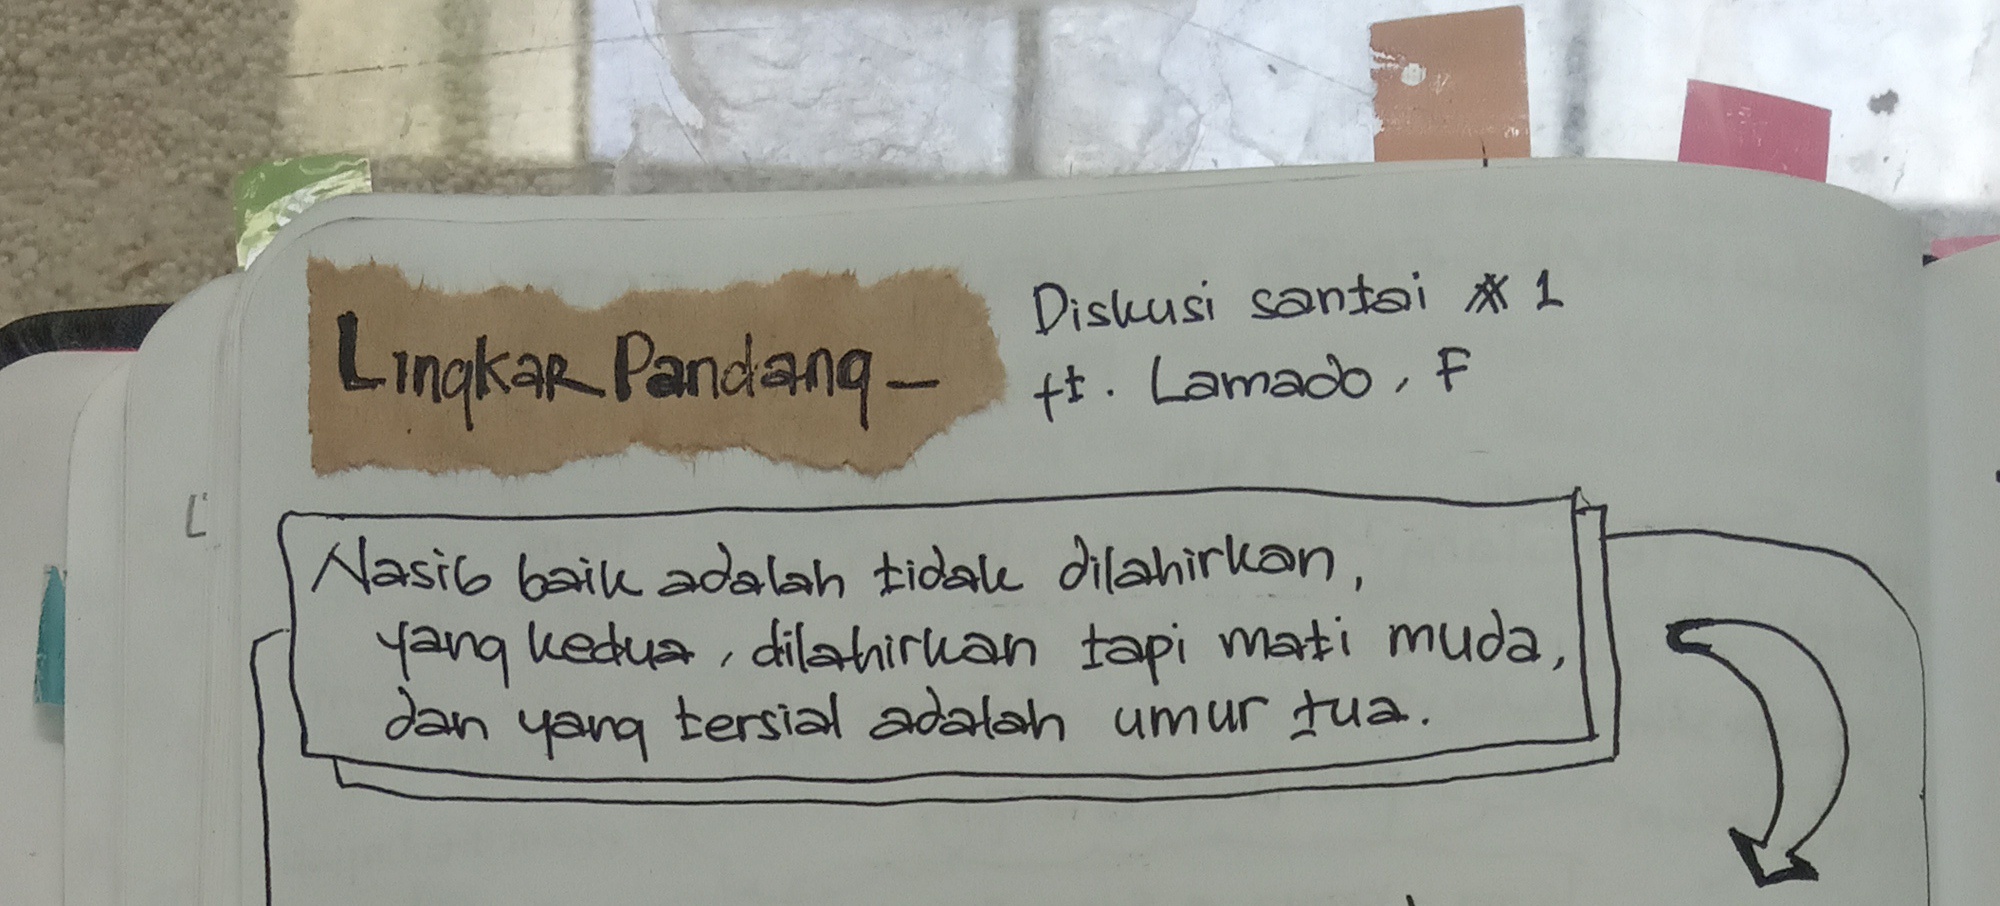 Lingkar Pandang —
Diskusi santai # 1
ft. Lamado, F
Nasib baik adalah tidak dilahirkan,
yang kedua, dilahirkan tapi mati muda,
dan yang tersial adalah umur tua.